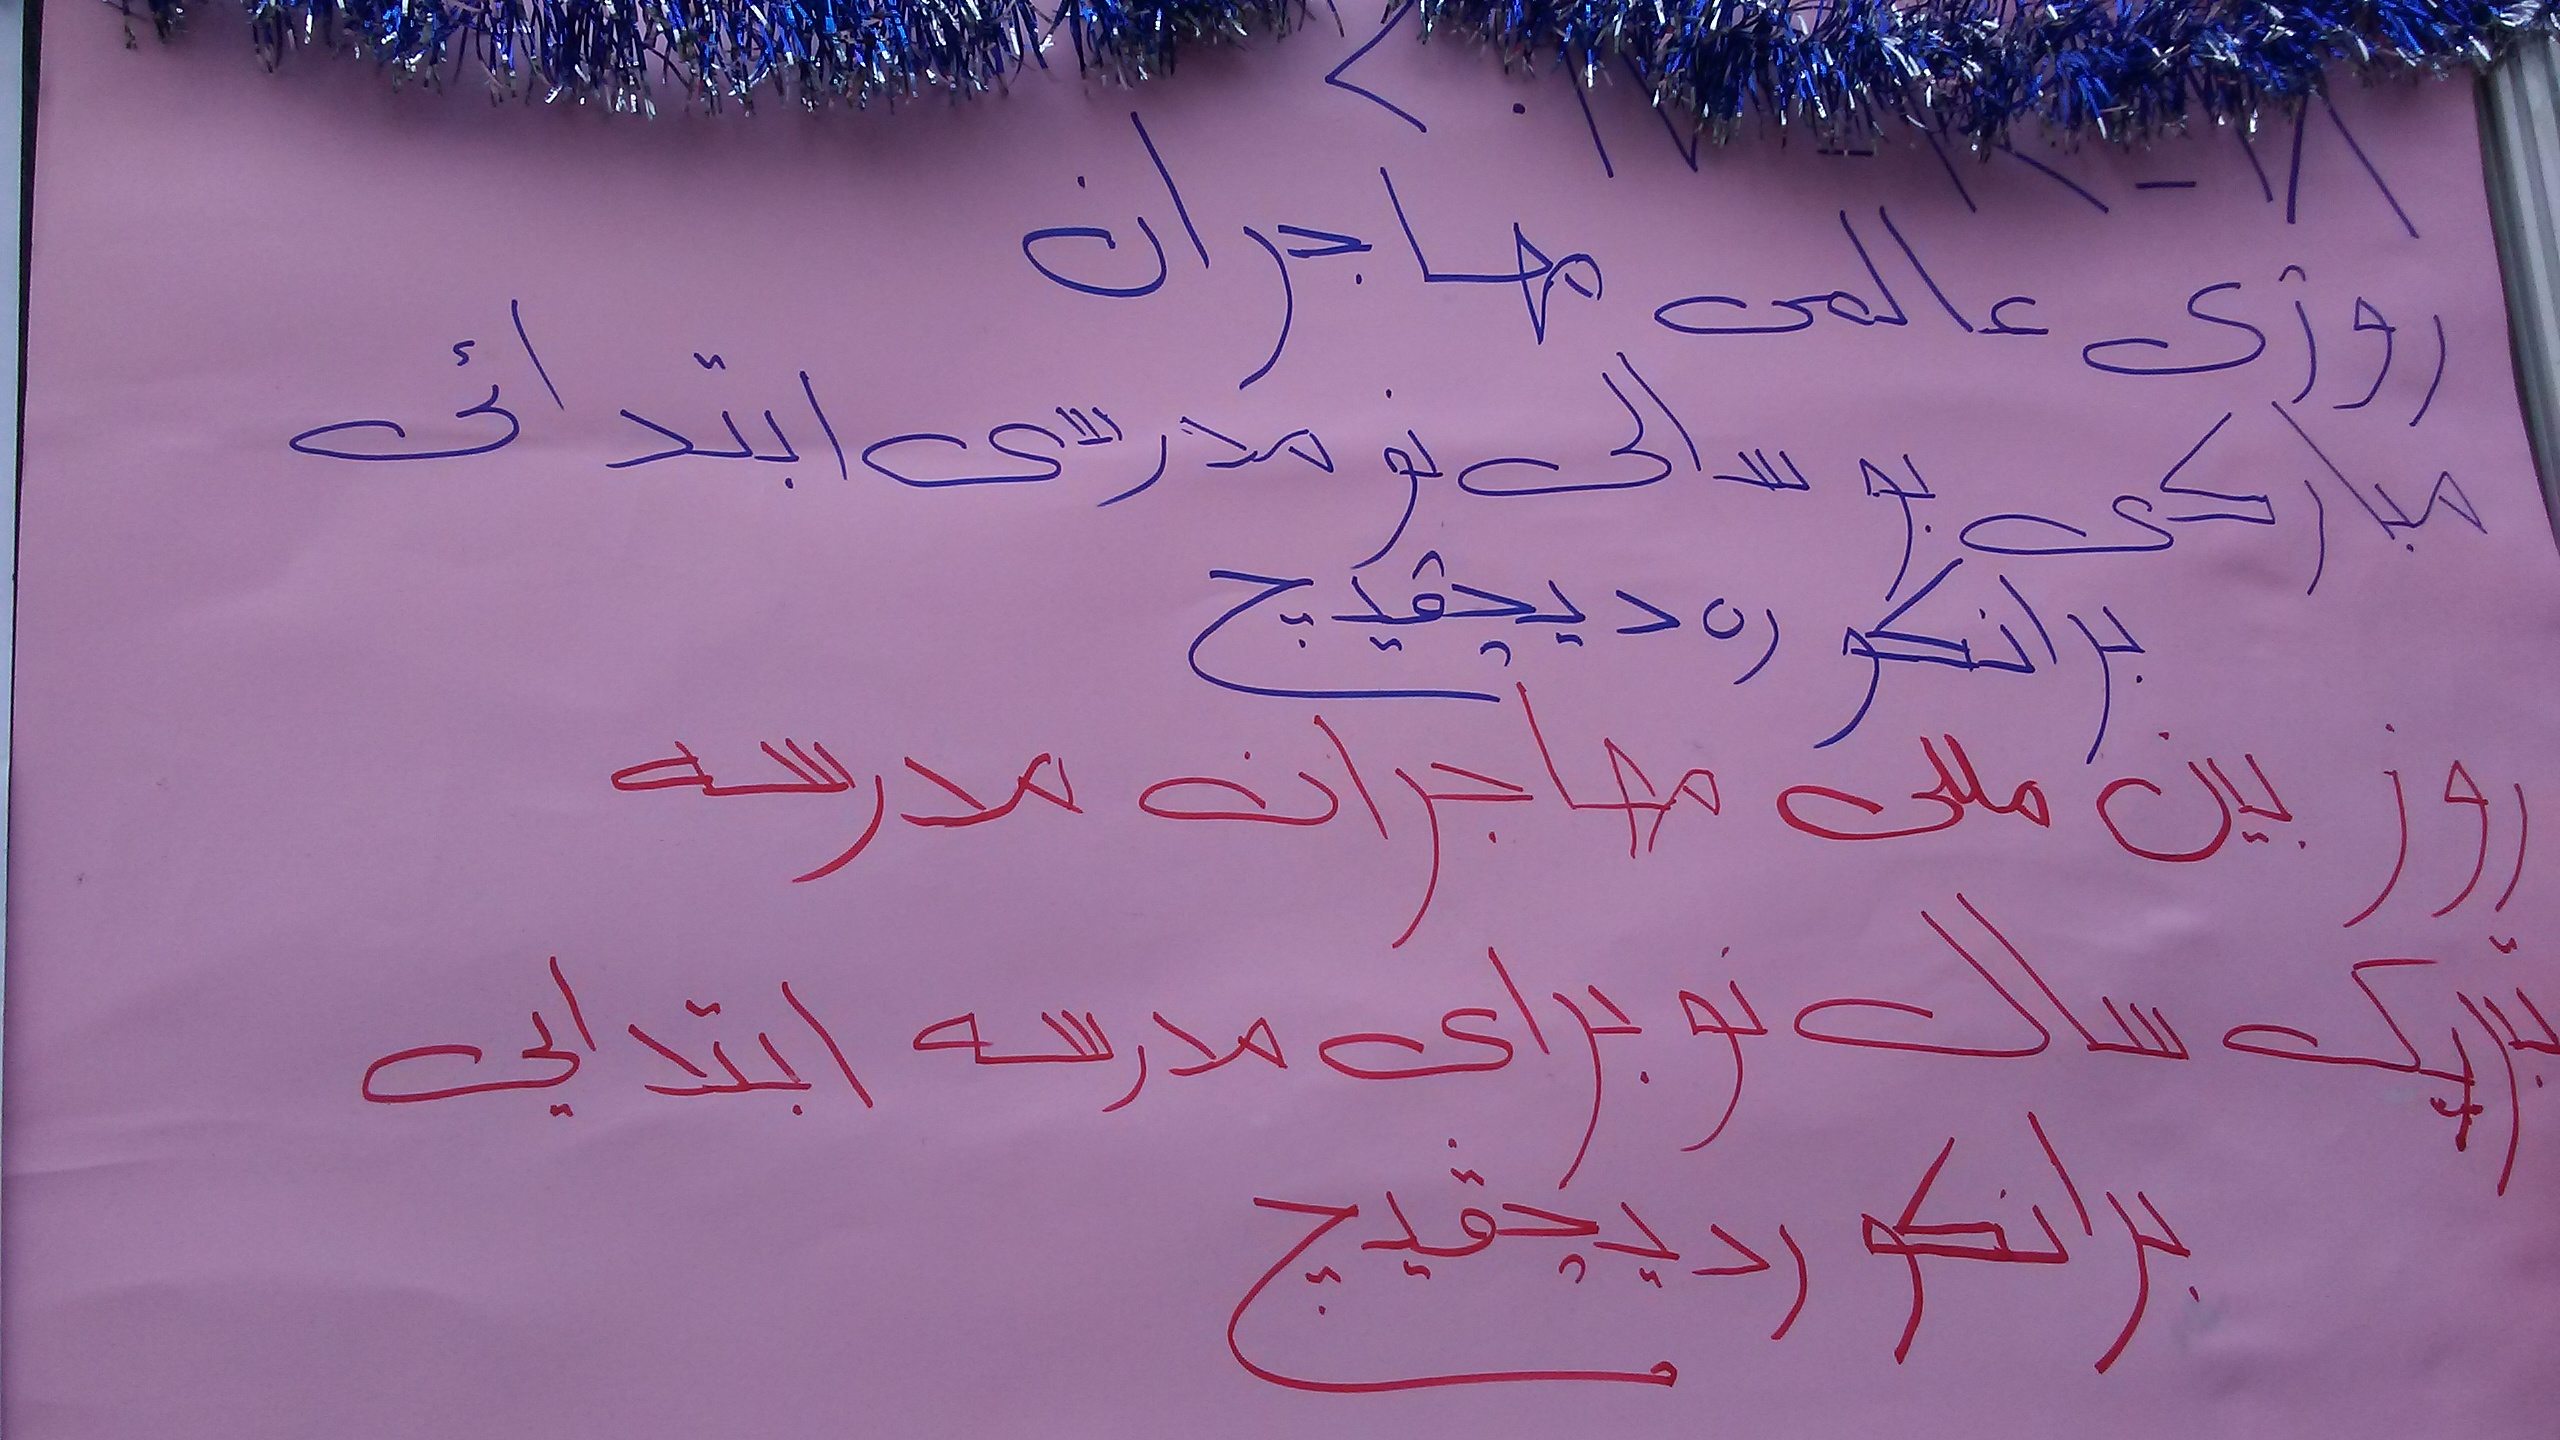 روژی عالمی مهاجران
مبارکی بو سالی نو مدرسی ابتدائی
برانکو ره دیچقیج
روز بین مللی مهاجران مدرسه
تبریک سال نو برای مدرسه ابتدایی
برانکو ردیچقیج